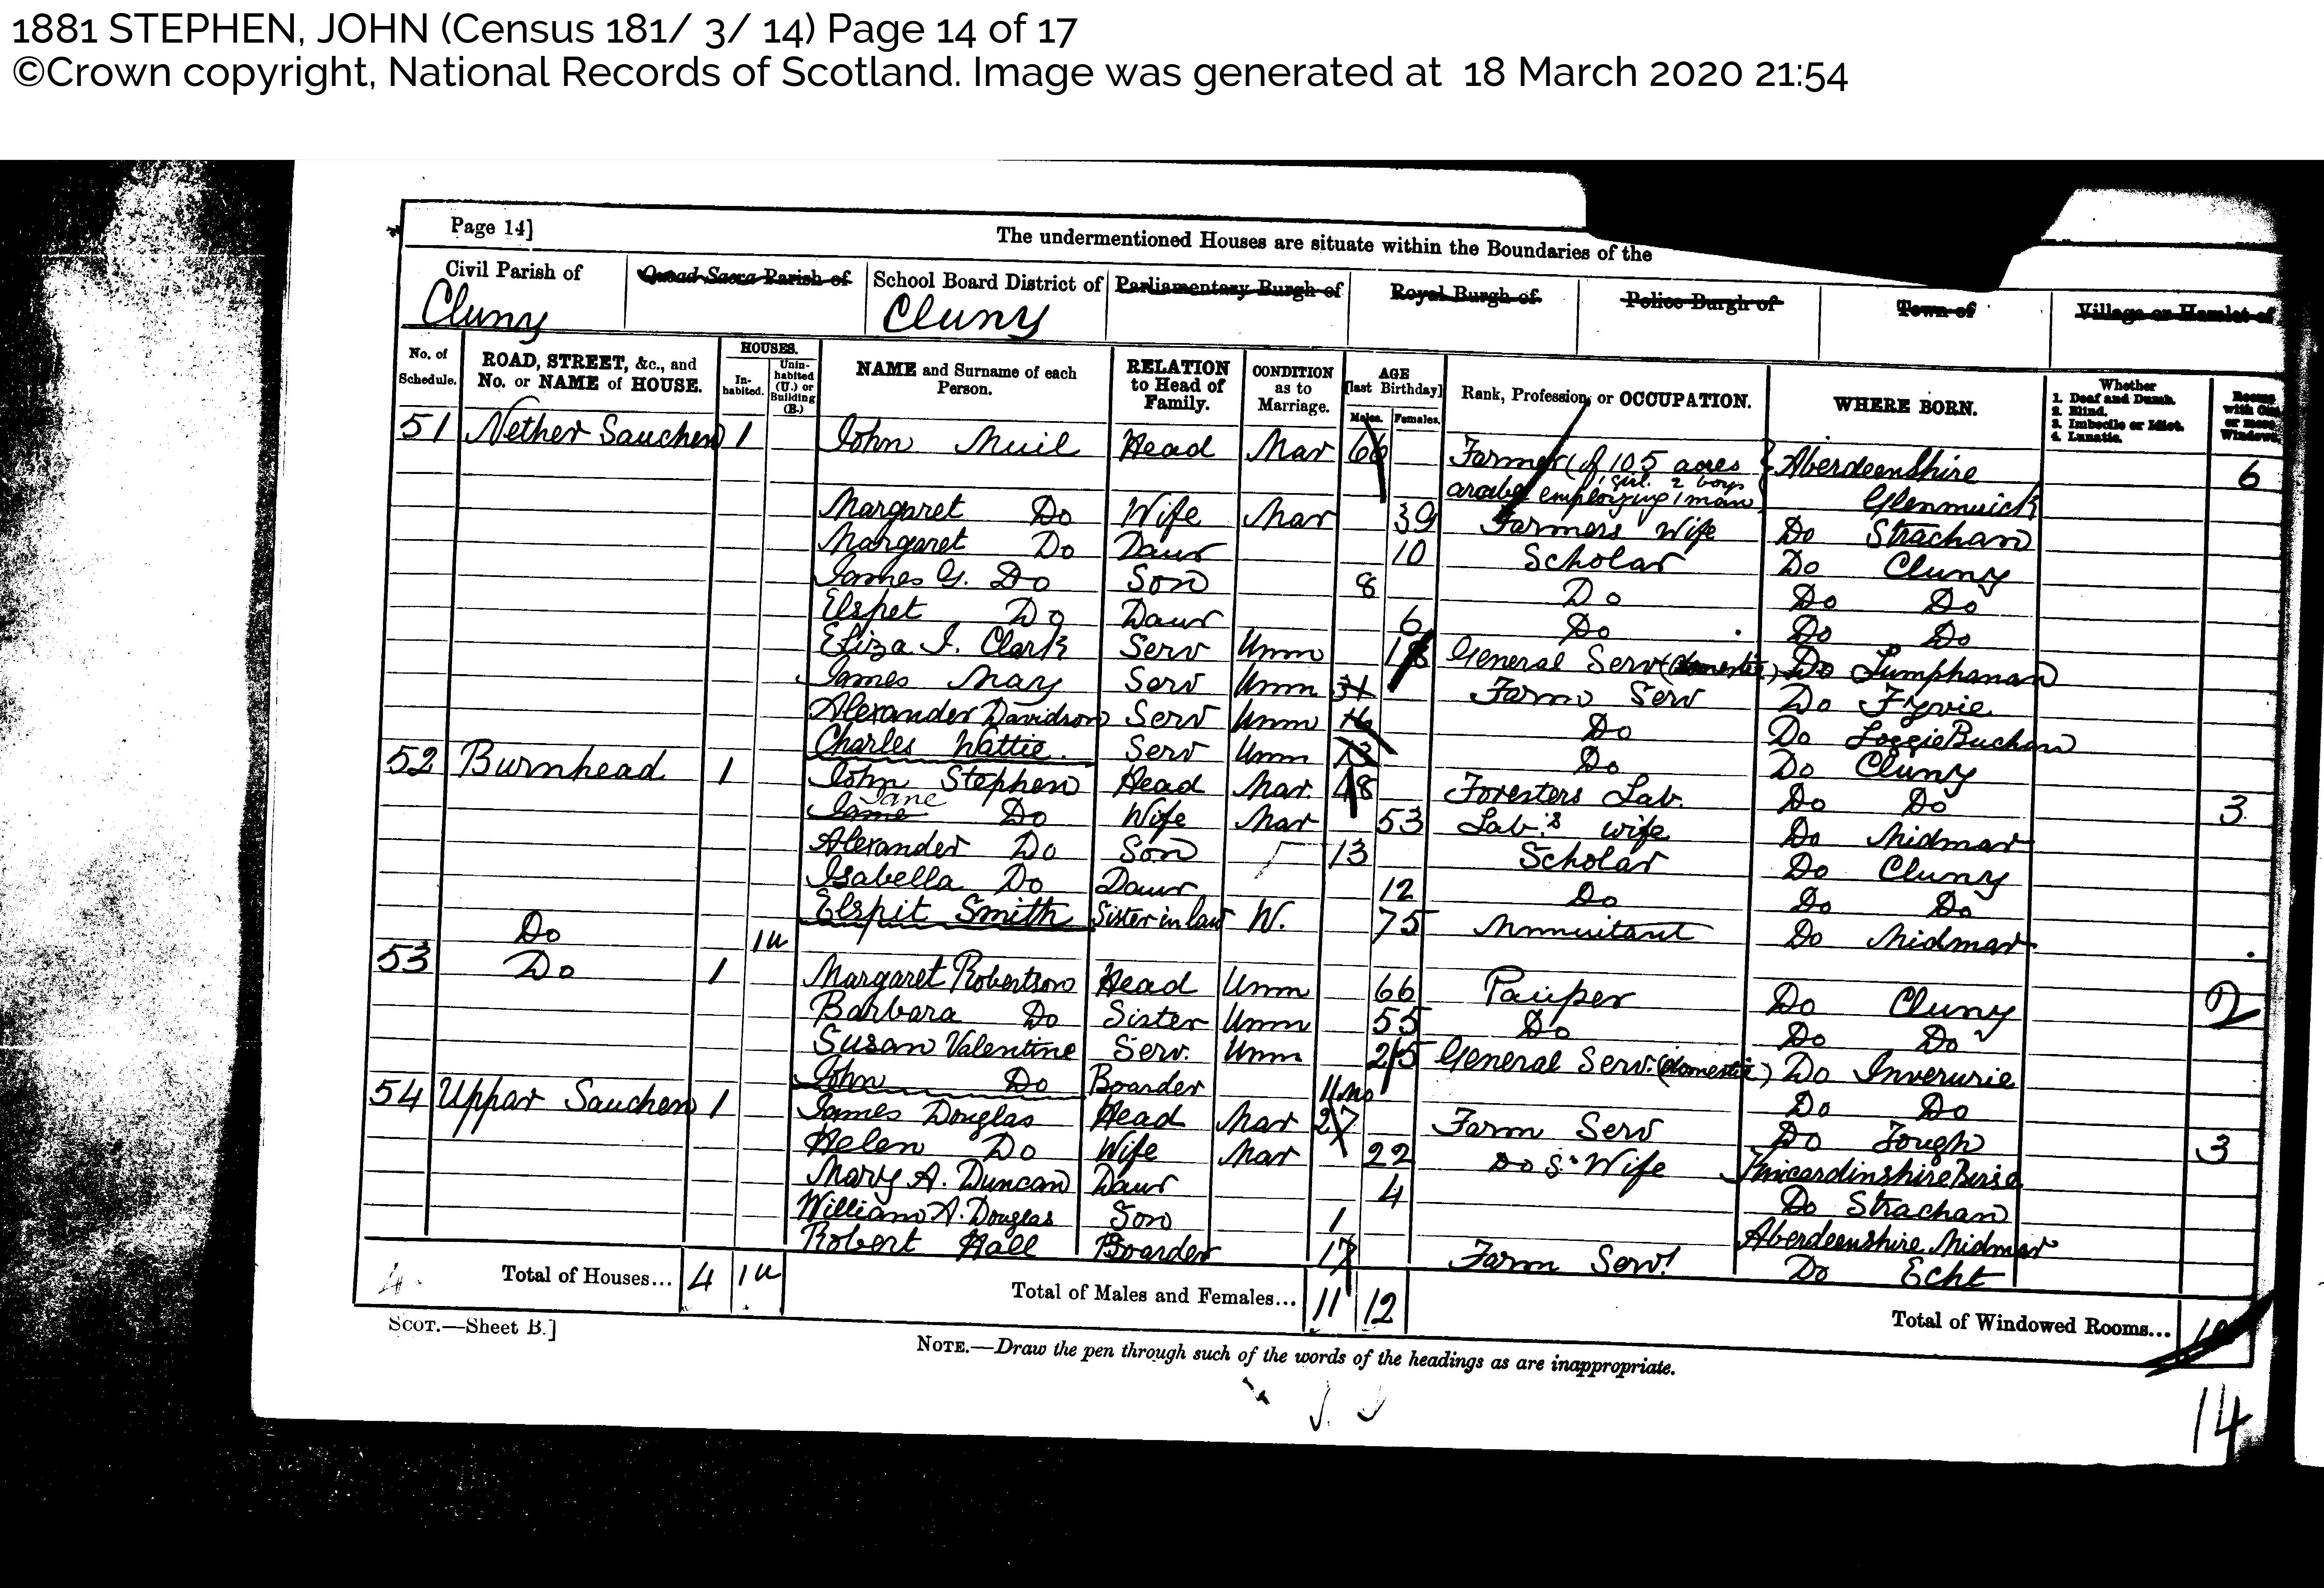 1881 STEPHEN, JOHN (Census 181/ 3/ 14) Page 14 of 17
©Crown copyright, National Records of Scotland. Image was generated at 18 March 2020 21:54
Page 14]
The undermentioned Houses are situate within the Boundaries of the
Civil Parish of Quoad Sacra Parish of School Board District of Parliamentary Burgh of Royal Burgh of Police Burgh of Town of Village or Hamlet of
Cluny Cluny
No. of Schedule. ROAD, STREET, &c., and No. or NAME of HOUSE. HOUSES. Inhabited. Uninhabited (U.) or Building (B.) NAME and Surname of each Person. RELATION to Head of Family. CONDITION as to Marriage. AGE [last Birthday] Males. Females. Rank, Profession, or OCCUPATION. WHERE BORN. Whether 1. Deaf and Dumb. 2. Blind. 3. Imbecile or Idiot. 4. Lunatic. Rooms with One or more Windows.
51 Nether Sauchen 1 John Muil Head Mar 66 Farmer (of 105 acres Aberdeenshire 6
arable employing 1 man 1 girl 2 boys Glenmuick
Margaret Do Wife Mar 39 Farmers Wife Do Strachan
Margaret Do Daur 10 Scholar Do Cluny
James G. Do Son 8 Do Do Do
Elspet Do Daur 6 Do Do Do
Eliza I. Clark Serv Unm General Serv (domestic) Do Lumphanan
James May Serv Unm 31 Farm Serv Do Fyvie
Alexander Davidson Serv Unm 16 Do Do LoggieBuchan
Charles Wattie Serv Unm 13 Do Do Cluny
52 Burnhead 1 John Stephen Head Mar. 48 Foresters Lab. Do Do 3
Jane Do Wife Mar 53 Lab.s wife Do Midmar
Alexander Do Son 13 Scholar Do Cluny
Isabella Do Daur 12 Do Do Do
Elspit Smith Sister in law W. 75 Annuitant Do Midmar
Do 1u
53 Do 1 Margaret Robertson Head Unm 66 Pauper Do Cluny 2
Barbara Do Sister Unm 55 Do Do Do
Susan Valentine Serv. Unm 25 General Serv. (domestic) Do Inverurie
John Do Boarder 11mo Do Do
54 Uppar Sauchen 1 James Douglas Head Mar 27 Farm Serv Do Tough 3
Helen Do Wife Mar 22 Do S. Wife Kincardinshire Birse
Mary A. Duncan Daur 4 Do Strachan
William A. Douglas Son 1 Aberdeenshire Midmar
Robert Hall Boarder 17 Farm Servt Do Echt
4 Total of Houses... 4 1u Total of Males and Females... 11 12 Total of Windowed Rooms...
SCOT.—Sheet B.]
NOTE.—Draw the pen through such of the words of the headings as are inappropriate.
14